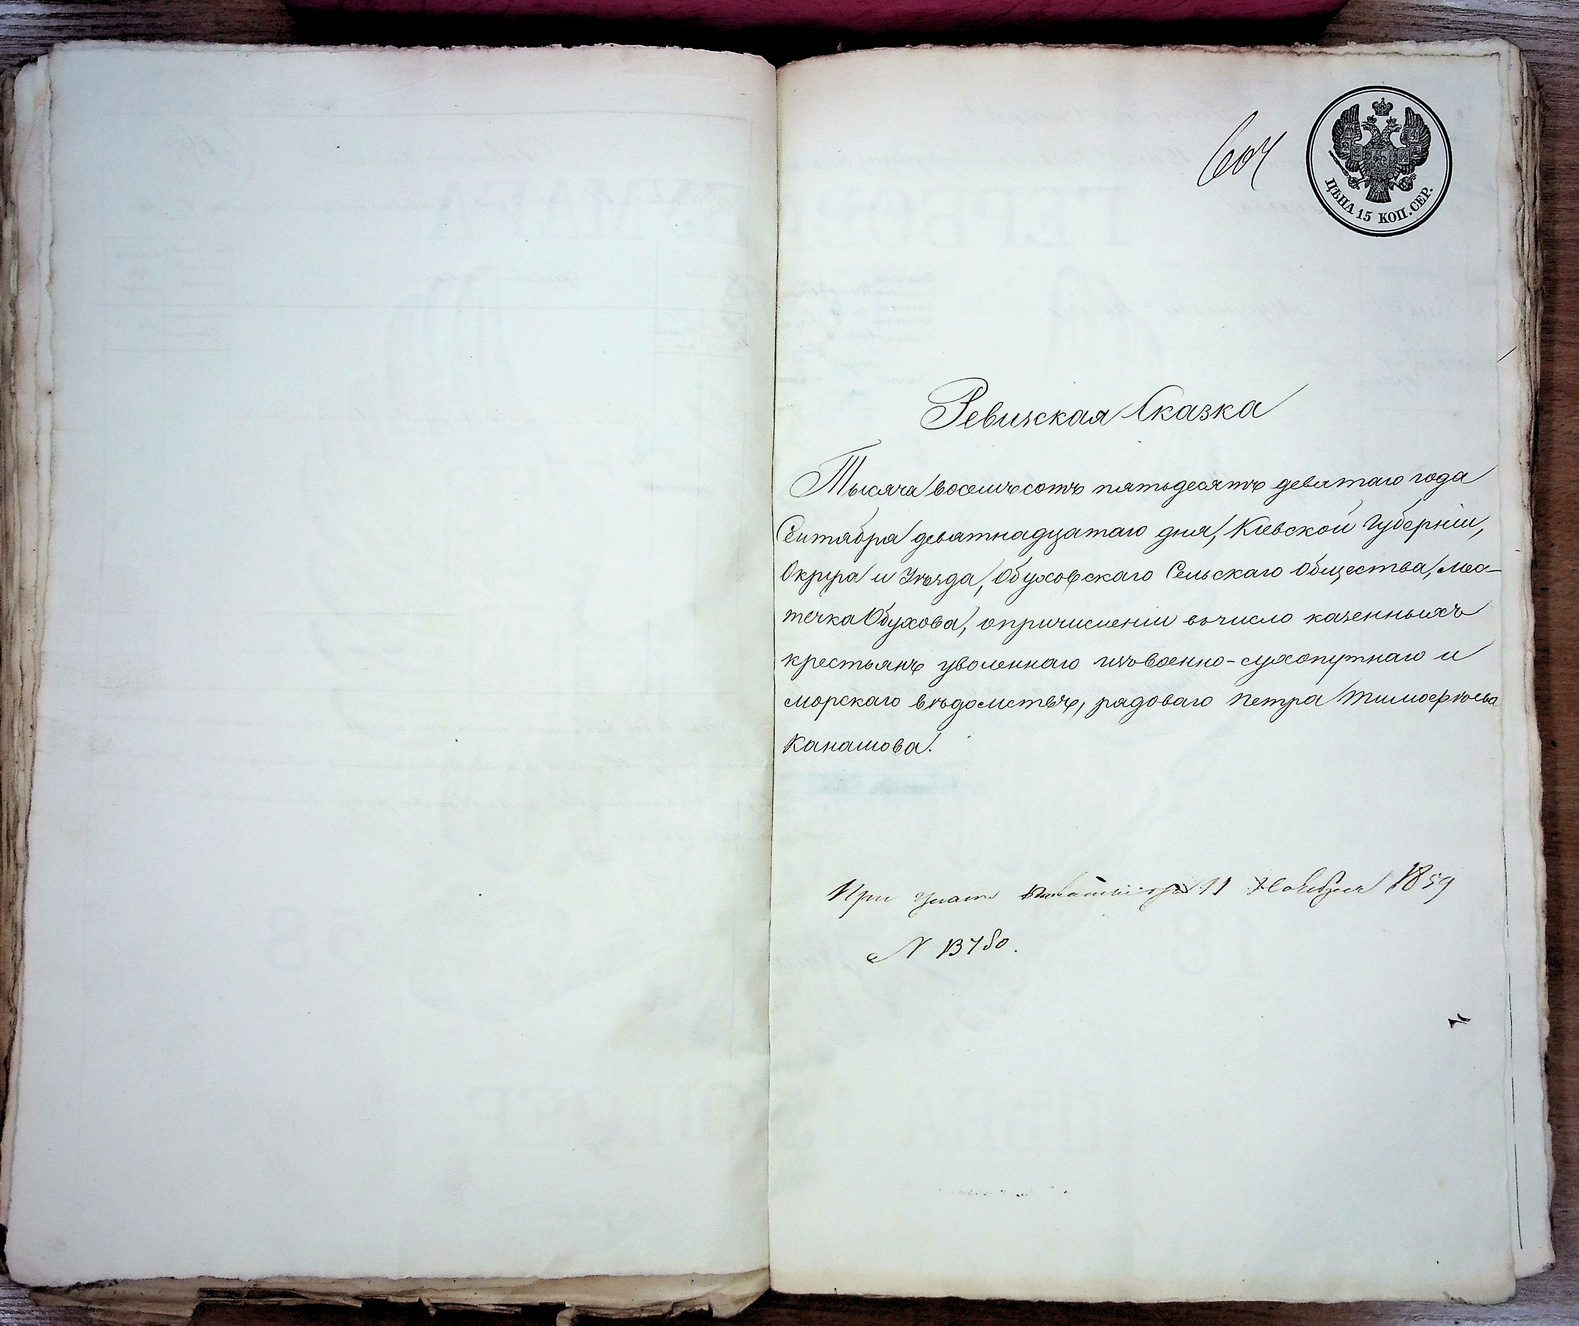 604
ЦѢНА 15 КОП. СЕР.
Ревизская Сказка
Тысяча восемьсотъ пятьдесятъ девятаго года
Сентября девятнадцатаго дня, Кіевской Губерніи,
Округа и Уѣзда, Обуховскаго Сельскаго Общества, мѣс-
течка Обухова, о причисленіи въ число казенныхъ
крестьянъ уволеннаго изъ военно-сухопутнаго и
морскаго вѣдомствъ, рядоваго Петра Тимофѣева
Канашова.
При 11 Ноября 1859
N 13780.